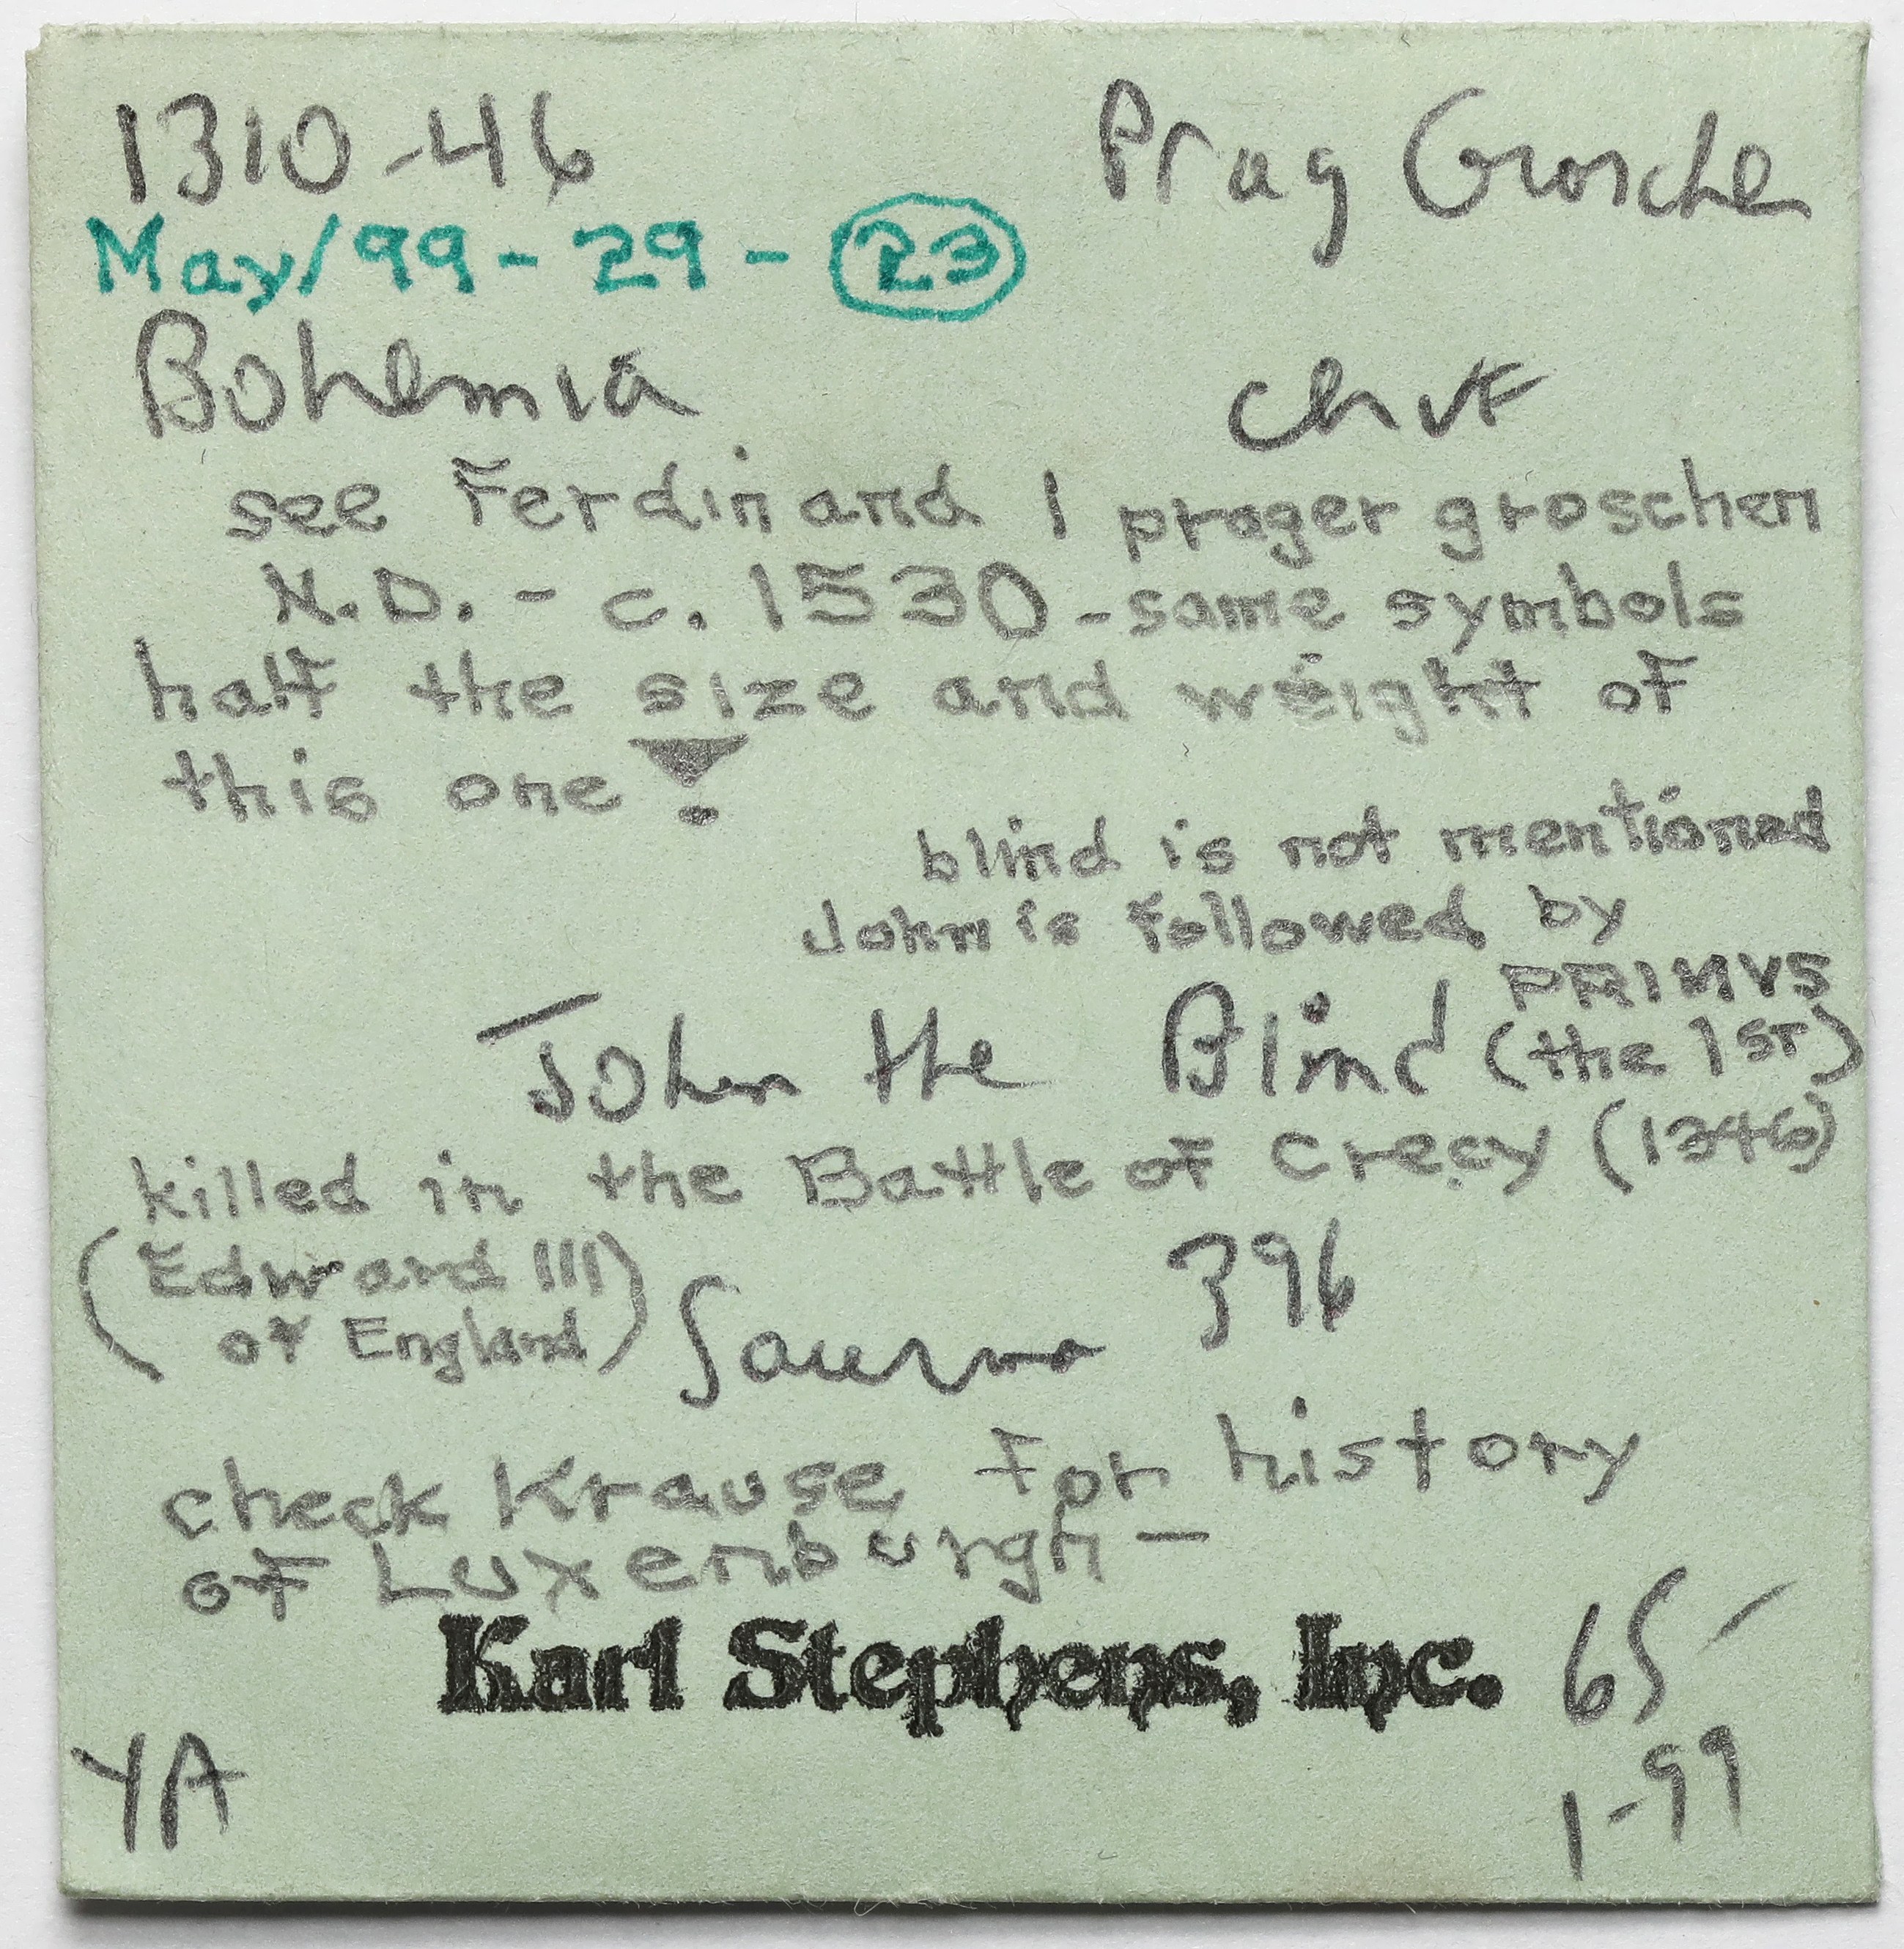 1310-46 Prag Groschen
May/99-29-23
Bohemia ch VF
see Ferdinand I prager groschen
N.D. - c. 1530 - same symbols
half the size and weight of
this one!
blind is not mentioned
John is followed by
PRIMVS
John the Blind (the 1ST)
killed in the Battle of Crecy (1346)
(Edward III
of England)
Saurma 396
check Krause for history
of Luxenburgh -
Karl Stephens, Inc. 65-
YA 1-99